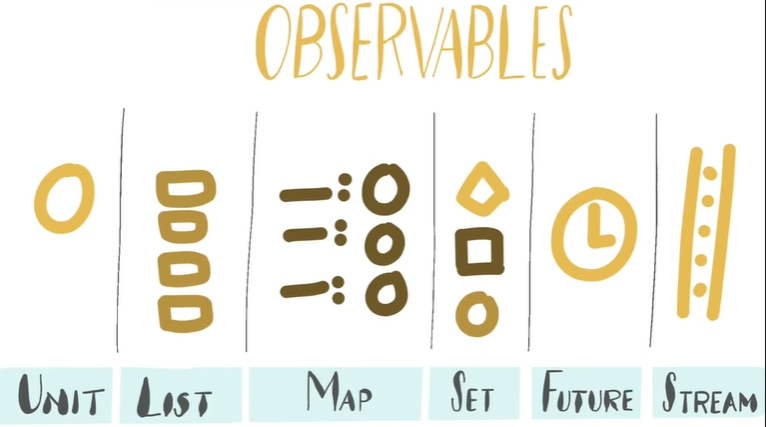 OBSERVABLES
UNIT LIST MAP SET FUTURE STREAM